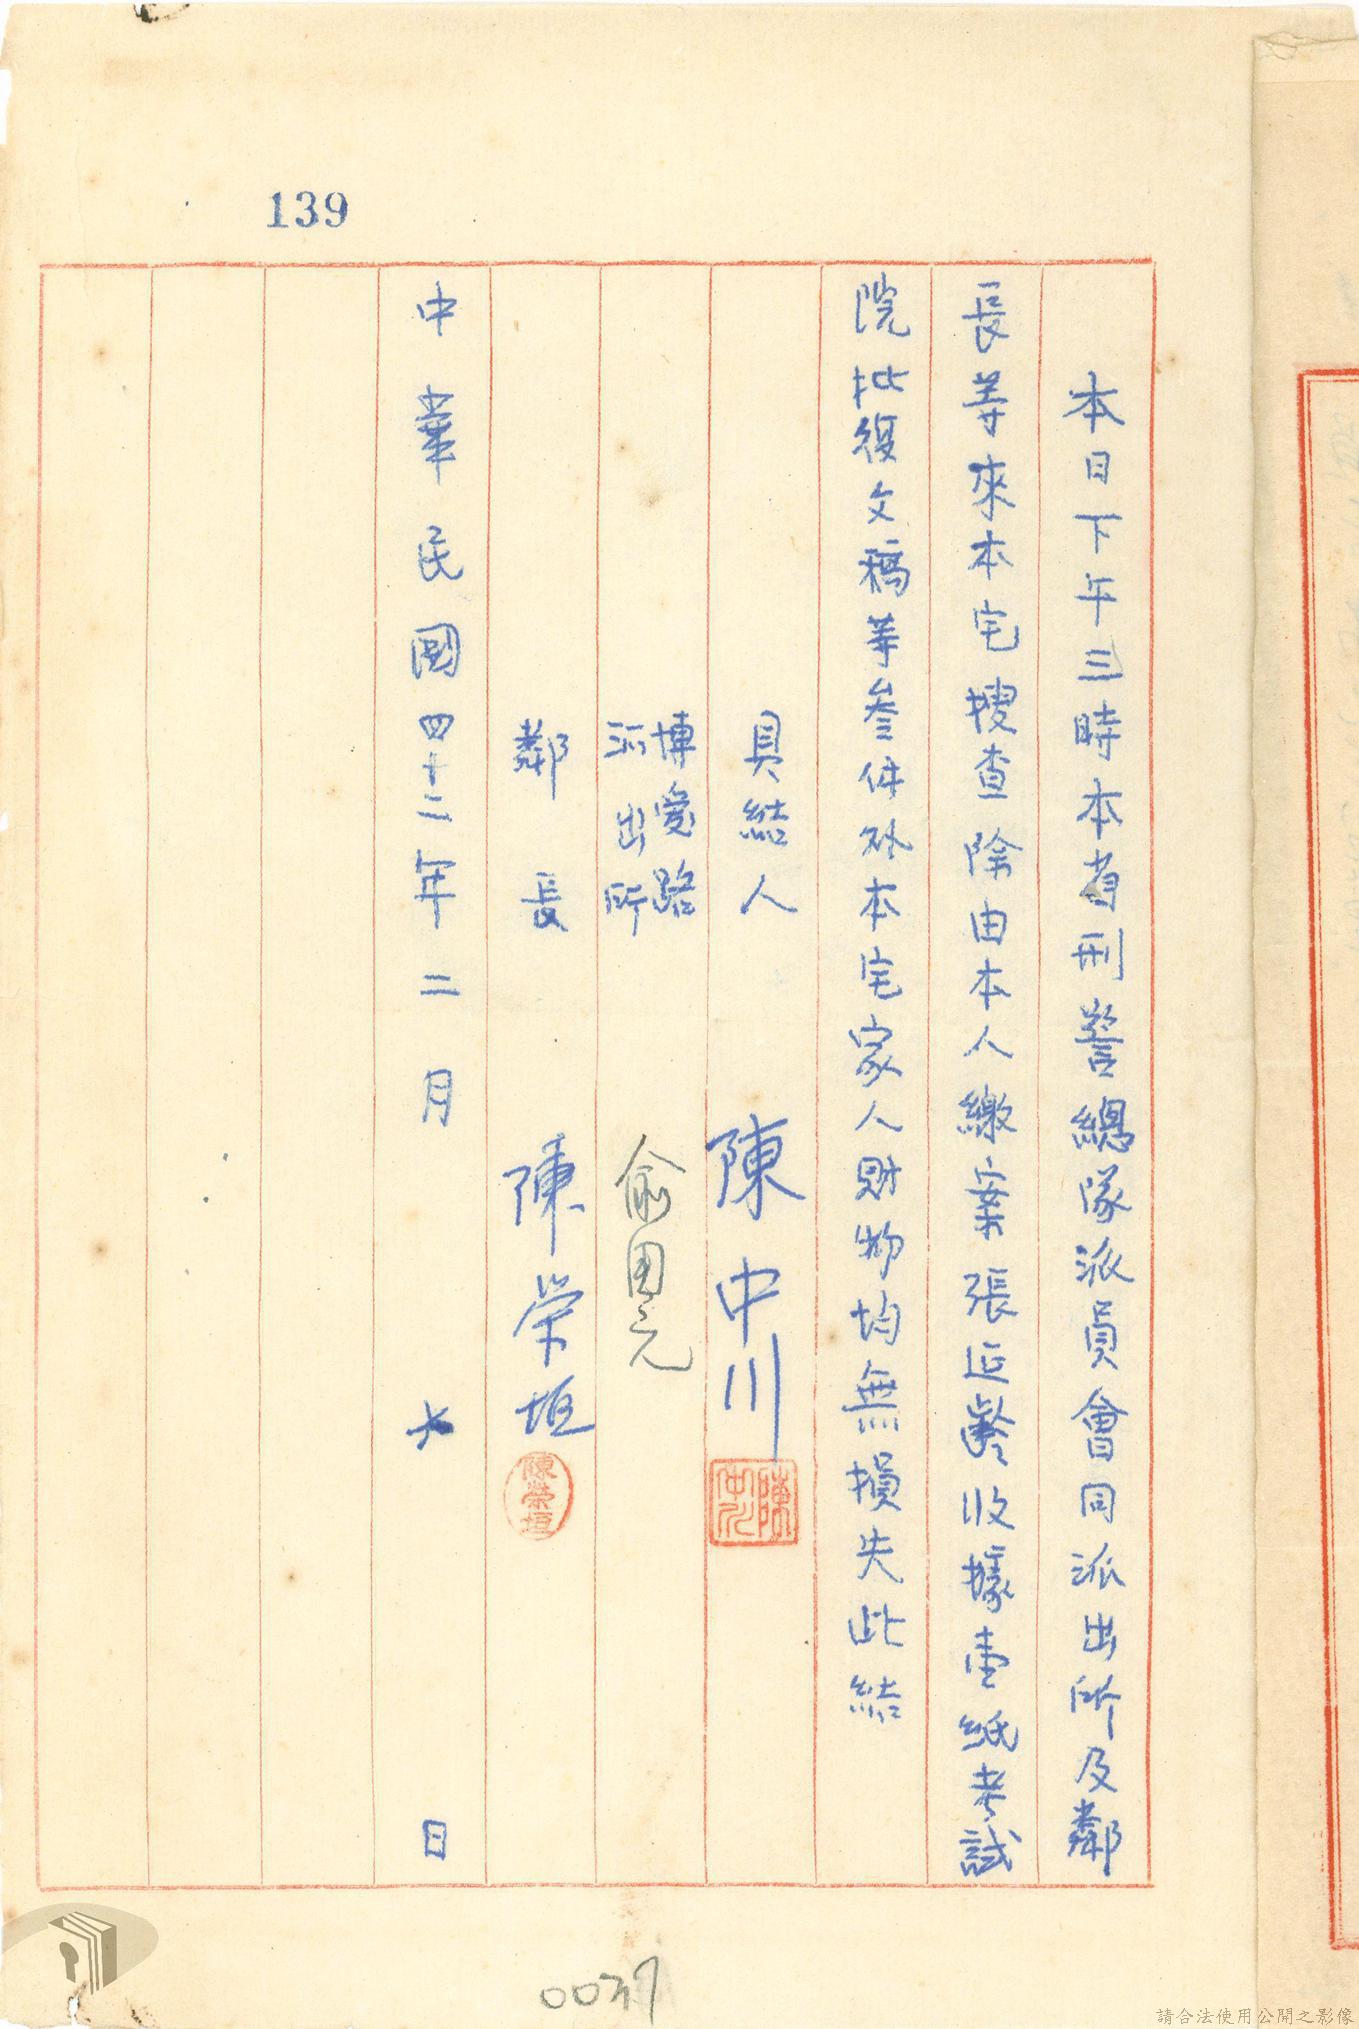 139
本日下午三時本省刑警總隊派員會同派出所及鄰
長等來本宅搜查除由本人繳案張延齡收據壹紙考試
院批復文稿等叁件外本宅家人財物均無損失此結
具結人 陳中川
陳中川
博愛路
派出所 俞國元
鄰長 陳榮垣
陳榮垣
中華民國四十二年二月 六 日
0037
請合法使用公開之影像